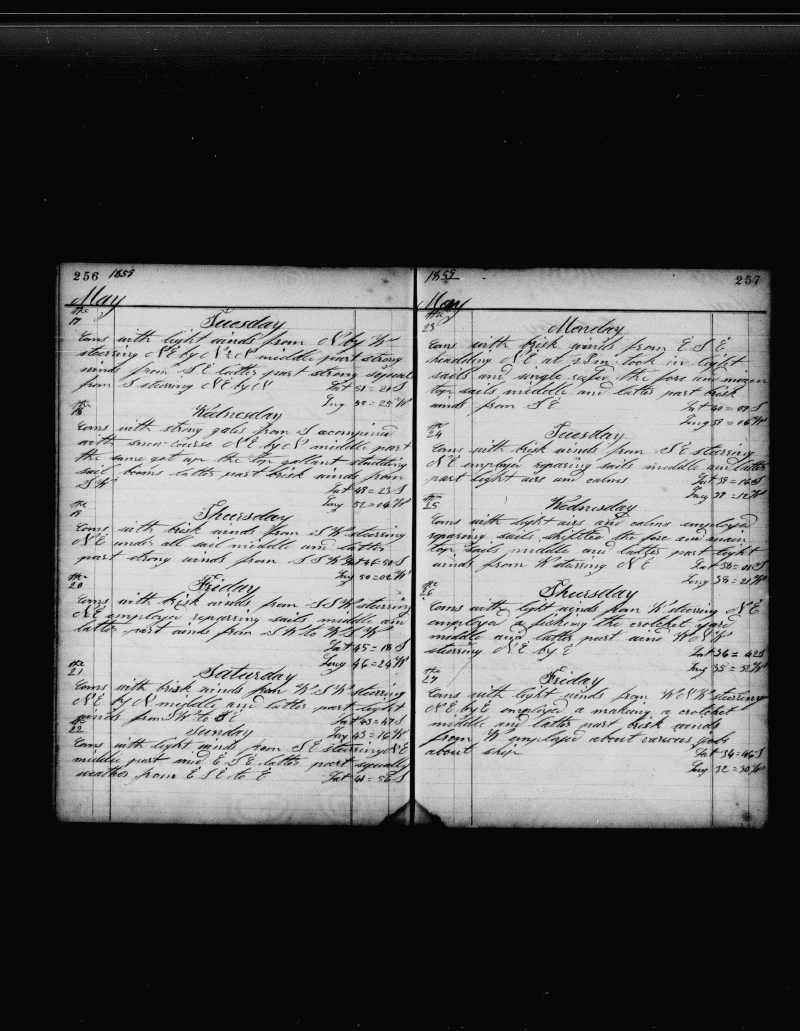 256 1859
May
the 17 Tuesday
Coms with light winds from N by W
steering NE by N middle part strong
winds from S E latter part strong squals
from S steering NE by N Lat 51=20 S
Lng 55=25 W
the 18 Wednesday
Coms with strong gales from S acompined
with snow course NE by N middle part
the same got up the top gallant studding
sail booms latter part brisk winds from
SW Lat 48=23 S
Lng 52=04 W
the 19 Thursday
Coms with brisk winds from SW steering
NE under all sail middle and latter
part strong winds from SSW Lat 46=50 S
Lng 50=02 W
the 20 Friday
Coms with brisk winds from SSW steering
NE employed reparring sails middle and
latter part winds from SW to WSW
Lat 45=18 S
Long 46=24 W
the 21 Saturday
Coms with brisk winds from WSW steering
NE by N middle and latter part light
winds from W to SE Lat 43=47 S
Lng 43=16 W
22 Sunday
Coms with light winds from SE steering NE
middle part wind ESE latter part squally
weather from ESE to E Lat 41=56 S
1859 257
May
the 23 Monday
Coms with brisk winds from ESE
headding NE at took in light
sails and single refed the fore and mizen
top sails middle and latter part brisk
winds from SE Lat 40=09 S
Long 39=06 W
the 24 Tuesday
Coms with brisk winds from SE steering
NE employed reparing sails middle and latter
part light airs and calms Lat 39=16 S
Lng 39=12 W
the 25 Wednesday
Coms with light airs and calms employed
reparing sails shiffted the fore and main
top sails middle and latter part light
winds from W steering NE Lat 38=01 S
Lng 38=21 W
the 26 Thursday
Coms with light winds from W steering NE
employed a fishing the crotchet yard
middle and latter part wind WNW
steering NE by E Lat 36=42 S
Lng 35=32 W
the 27 Friday
Coms with light winds from WNW steering
NE by E employed a making a crotchet
middle and latter part brisk winds
from W employed about vareous jobs
about ship Lat 34=46 S
Lng 32=30 W